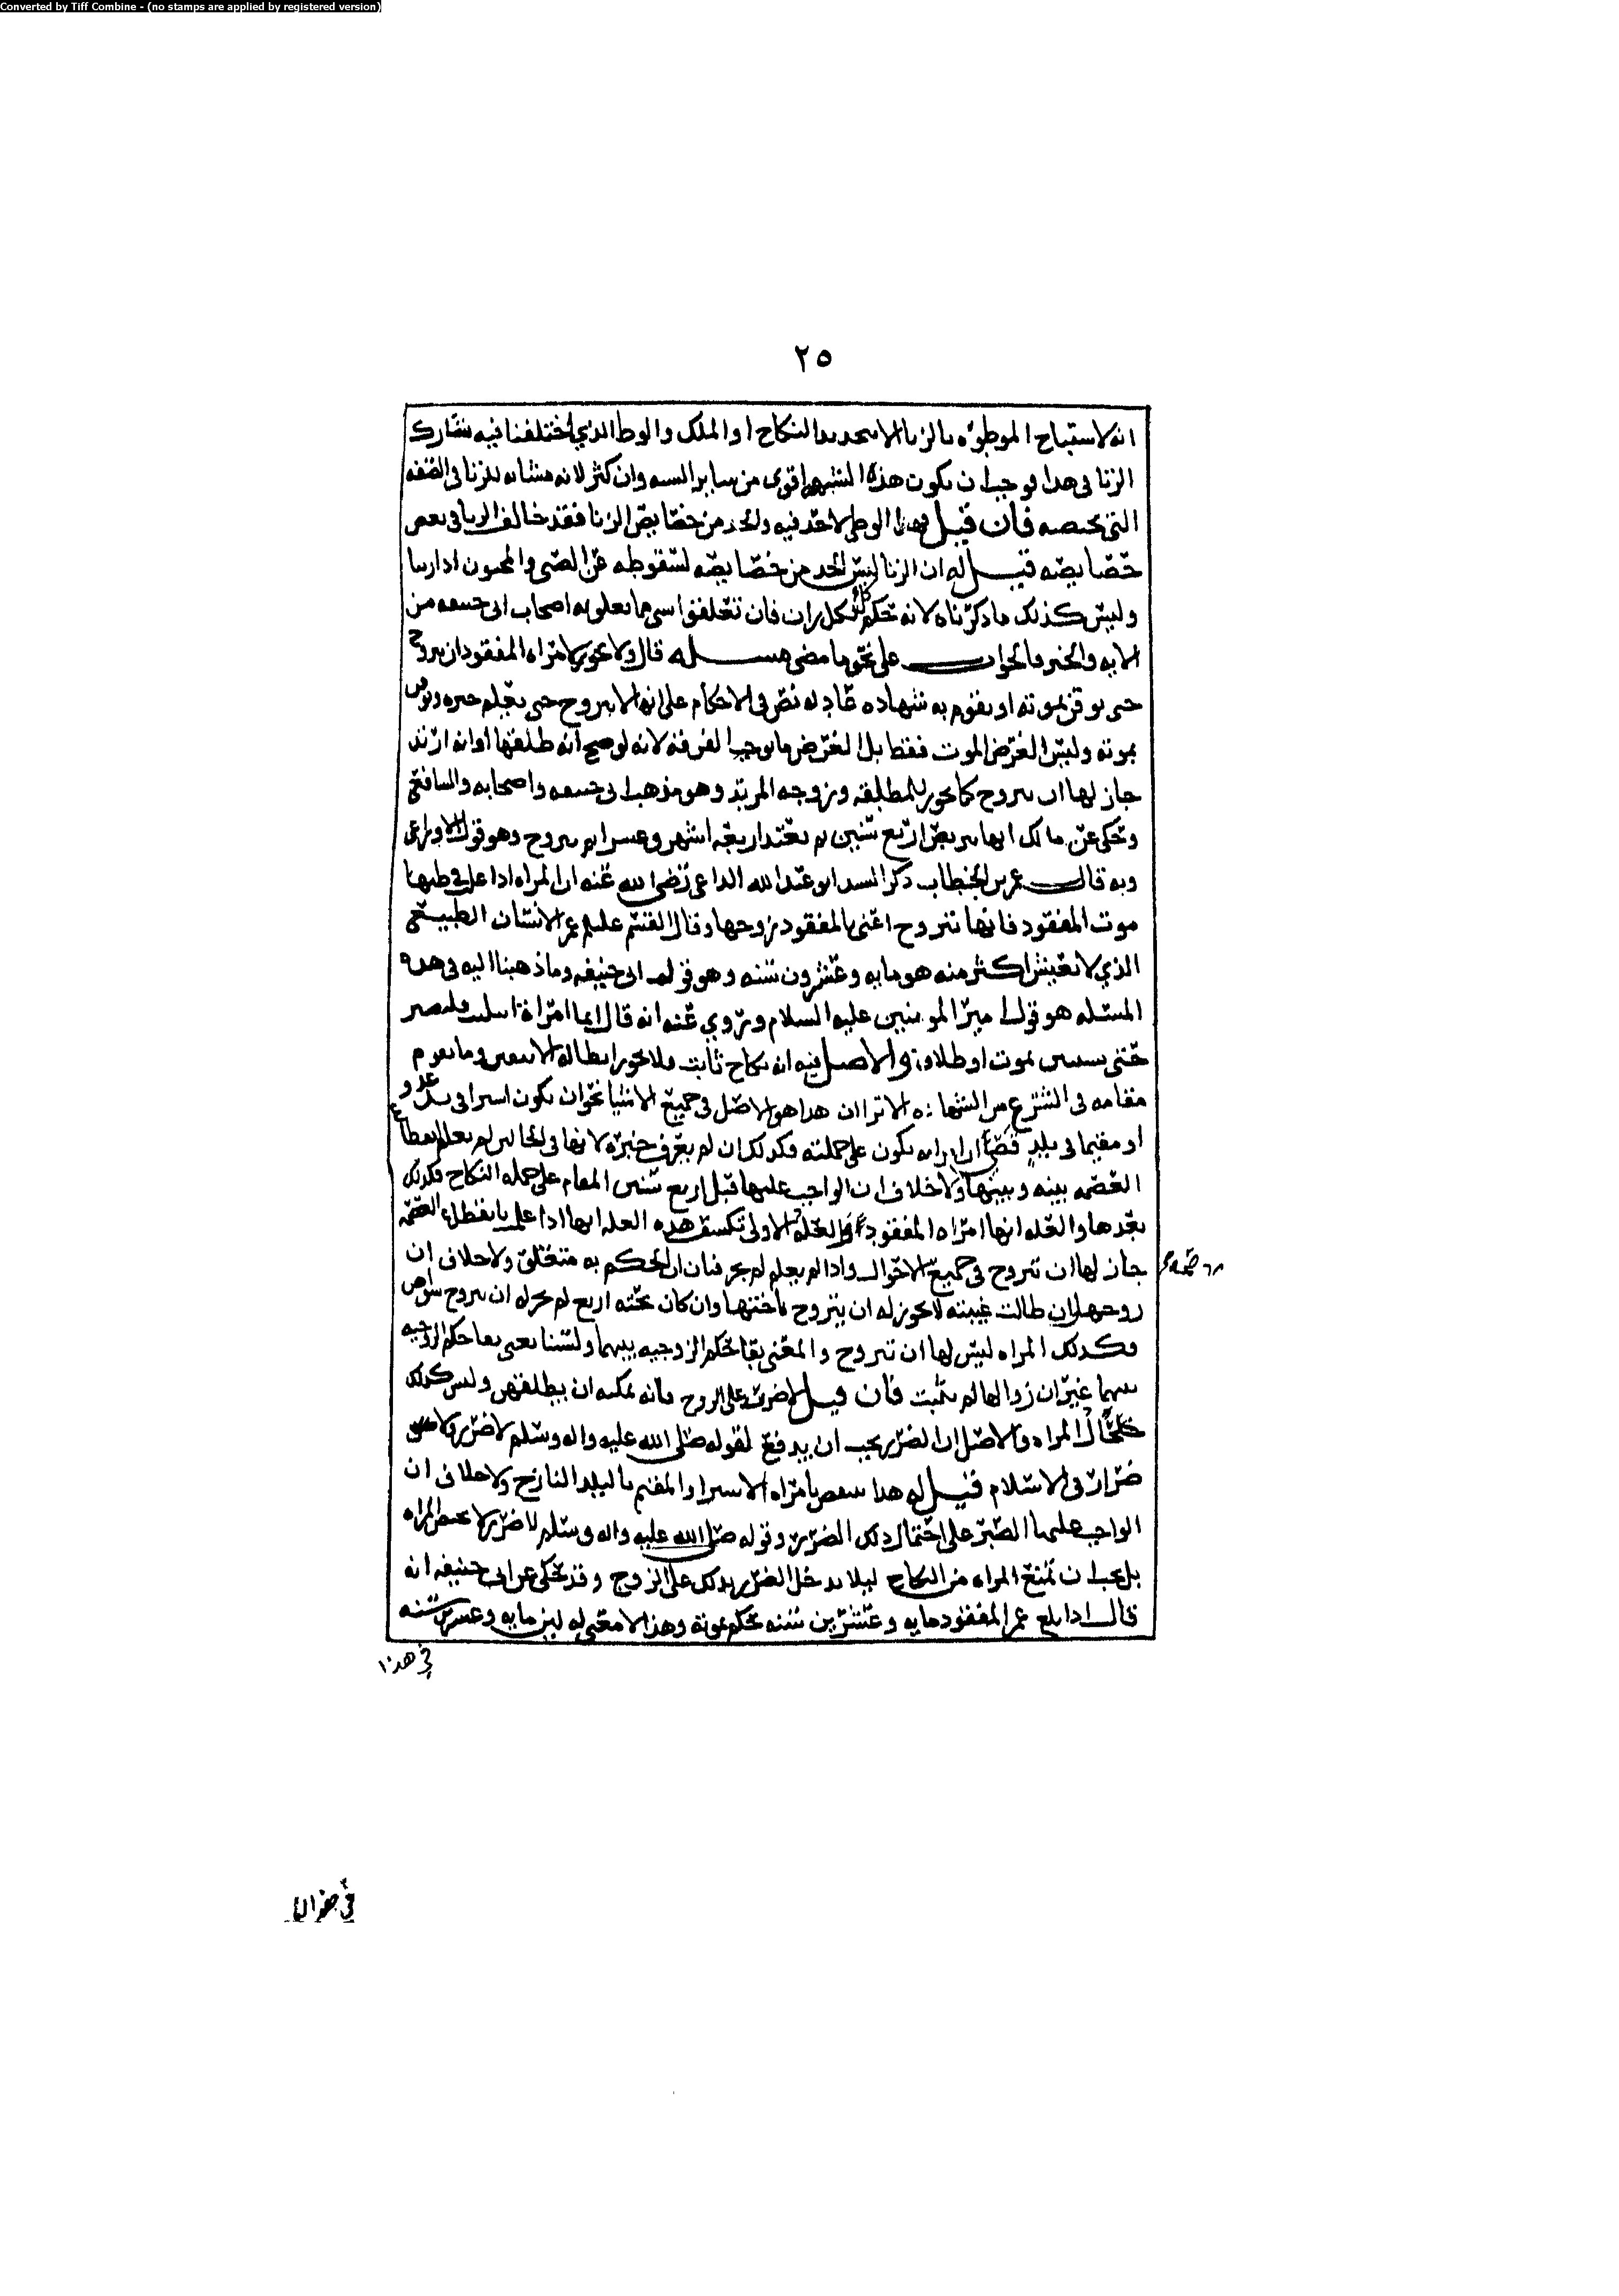 Converted by Tiff Combine - (no stamps are applied by registered version)
٢٥
انه لاستباح الموطؤه بالزنا الا بتجديد النكاح او الملك والوطا الذي اختلفنا فيه شارك
الزنا في هذا فوجب ان يكون هذا الشبه اقوى من ساير السبه وان كثر لانه مشابه للزنا في الصفه
التي تخصه فان قيل فهذا الوطي لاحد فيه والحد من خصايص الزنا فقد خالف الزنا في بعض
خصايصه قيل له ان الزنا ليس الحد من خصايصه لسقوطه عن الصبي والمجنون اذا زنيا
وليس كذلك ما ذكرناه لانه حكم لكل زان فان تعلقوا بشي مما تعلق به اصحاب ابي حنيفه من
الايه والخبر فالجواب على نحو ما مضى مسله قال ولا يجوز لامراه المفقود ان تتزوج
حتى توقن بموته او يقوم به شهاده عادله نص في الاحكام على انها لا تتزوج حتى يعلم خبره
بموته وليس الغرض الموت فقط بل الغرض ما يوجب الفرقه لانه لو صح انه طلقها او انه ارتد
جاز لها ان تتزوج كما يجوز للمطلقه وزوجه المرتد وهو مذهب ابي حنيفه واصحابه والشافعي
وحكي عن مالك انها تتربص اربع سنين ثم تعتد اربعه اشهر وعشرا ثم تتزوج وهو قول الاوزاعي
وبه قال عمر بن الخطاب ذكر السيد ابو عبد الله الداعي رضي الله عنه ان المراه اذا غلب في ظنها
موت المفقود فانها تتزوج اعني بالمفقود زوجها وقال القسم عليلم عمر الانسان الطبيعي
الذي لا يعيش اكثر منه هو مايه وعشرون سنه وهو قول ابي حنيفه وما ذهبنا اليه في هذه
المسئله هو قول امير المومنين عليه السلام وروي عنه انه قال ايما امراة ابتليت فلتصبر
حتى تستبين بموت او طلاق والاصل فيه انه نكاح ثابت فلا يجوز ابطاله الا بيقين وما يقوم
مقامه في الشرع من الشهاده الا ترا ان هذا هو الاصل في جميع الاشيا نحو ان يكون اسيرا في بلد عدو
او مقيما في بلد يكون على جملته وكذلك ان لم يعرف خبره لانها في الحالين لم يعلم انقطاع
العصمه بينه وبينها ولا خلاف ان الواجب عليها قبل اربع سنين المقام على جمله النكاح فكذلك
بعدها والعله انها امراه المفقود والعله الاولى تكسف هذه العله انها اذا علمت بانقطاع العصمه
جاز لها ان تتزوج في جميع الاحوال واذا لم يعلم لم يجز فبان ان الحكم به متعلق ولا خلاف ان
زوجها ان طالت غيبته لا يجوز له ان يتزوج باختها وان كان تحته اربع لم يجز له ان يتزوج سواهن
وكذلك المراه ليس لها ان تتزوج والمعنى بقا حكم الزوجيه بينهما ولسنا نعني بقا حكم الزوجيه
بينهما غير ان زوالها لم يثبت فان قيل لا ضرر على الزوج فانه يمكنه ان يطلقهن وليس كذلك
حال المراه والاصل ان الضرر يجب ان يدفع لقوله صلى الله عليه واله وسلم لا ضرر ولا
ضرار في الاسلام قيل له هذا منتقض بامراه الاسير او المقيم بالبلد النازح ولا خلاف ان
الواجب عليها الصبر على احتمال ذلك الضرر وقوله صلى الله عليه واله وسلم لا ضرر لا يختص المراه
بل يجب ان تمنع المراه من النكاح ليلا يدخل الضرر بذلك على الزوج وقد حكي عن ابي حنيفه انه
قال اذا بلغ عمر المفقود مايه وعشرين سنه حكم بموته وهذا لا معنى له لان مايه وعشرين سنه
في هذا